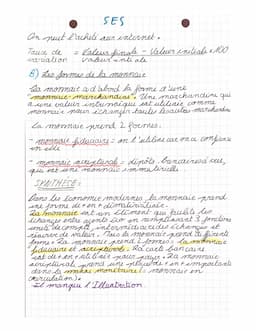 SES
On peut l'acheté sur internet.
Taux de = Valeur finale - Valeur initiale x 100
variation valeur initiale
B) Les formes de la monnaie
La monnaie a d'abord la forme d'une
monnaie-marchandise. Une marchandise qui
a une valeur intrinsèque est utilisée comme
monnaie pour échanger toutes les autres marchandises
La monnaie prend 2 formes:
- monnaie fiduciaire = on l'utilise car on a confiance
en elle
- monnaie scripturale = dépôts bancaires à vue,
qui est une monnaie immatérielle
SYNTHESE:
Dans les économie modernes, la monnaie prend
une forme de + en + dématérialisée.
La monnaie est un élément qui facilite les
échanges entre agents éco en remplissant 3 fonctions
unité de compte, intermédiaire des échanges et
réserve de valeur. Mais la monnaie prend différente
forme. La monnaie prend 2 formes: la monnaie
fiduciaire et scripturale. La carte bancaire
est de + en + utilisée pour payer. La monnaie
scripturale prend une place de + en + importante
dans la masse monétaire (= monnaie en
circulation).
Il manque l'Illustration.